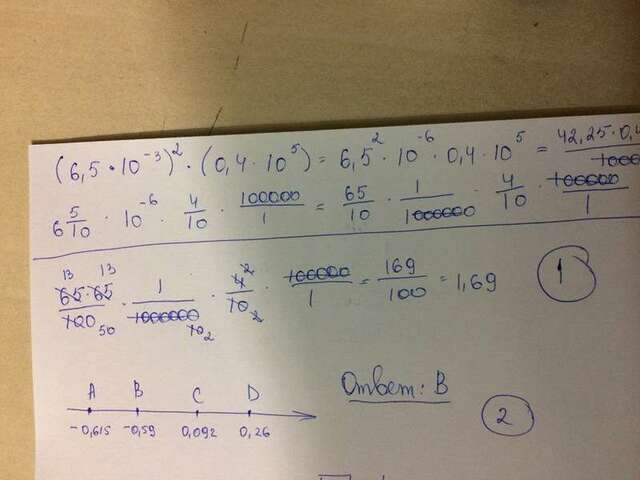 (6,5 · 10⁻³)² · (0,4 · 10⁵) = 6,5² · 10⁻⁶ · 0,4 · 10⁵ = 42,25 · 0,4
6 5/10 · 10⁻⁶ · 4/10 · 100000/1 = 65/10 · 1/1000000 · 4/10 · 100000/1
13 13
65·65/100 50 · 1/1000000 10 2 · 4 2/10 2 · 100000/1 = 169/100 = 1,69 1
A B C D Ответ: B
-0,615 -0,59 0,092 0,26 2